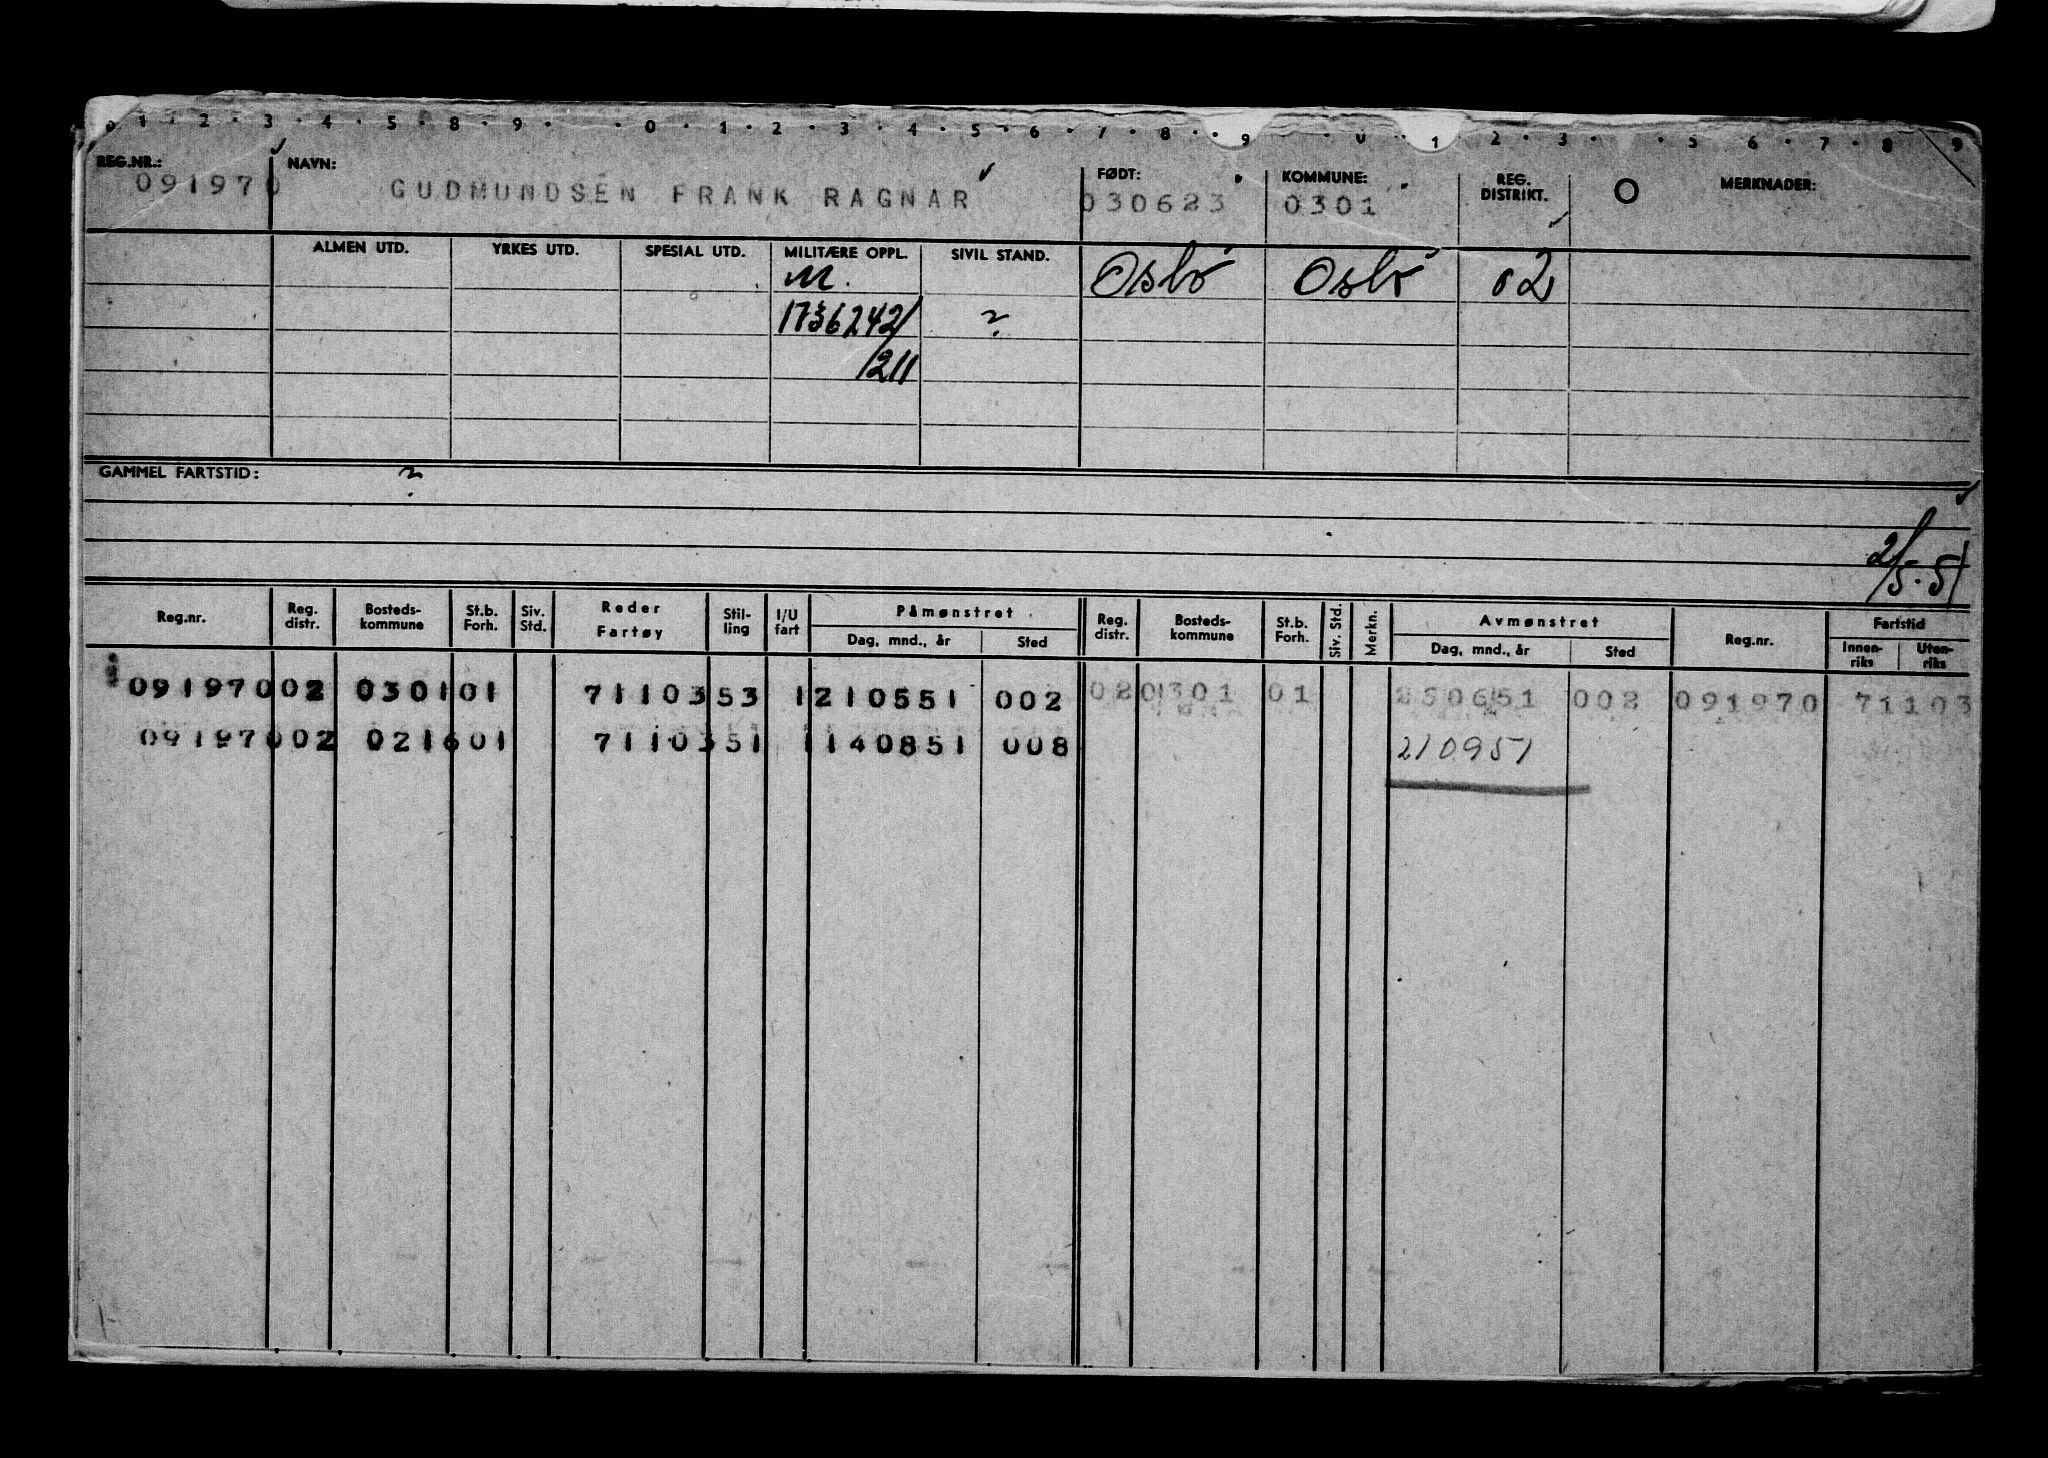 0 1 · 2 · 3 · 4 · 5 · 8 · 9 · · 0 · 1 · 2 · 3 · 4 · 5 · 6 · 7 · 8 · · 9 · 0 · 1 2 · 3 · · 5 · 6 · 7 · 8 · 9
REG.NR.: NAVN: FØDT: KOMMUNE: REG. DISTRIKT. MERKNADER:
091970 GUDMUNDSEN FRANK RAGNAR 030623 0301
ALMEN UTD. YRKES UTD. SPESIAL UTD. MILITÆRE OPPL. SIVIL STAND. Oslo Oslo 02
M.
1736242/ ?
/211
GAMMEL FARTSTID: ?
2/5-51
Reg.nr. Reg. distr. Bosteds-kommune St.b. Forh. Siv. Std. Reder Fartøy Stil-ling I/U fart Påmønstret Dag, mnd., år Sted Reg. distr. Bosteds-kommune St.b. Forh. Siv. Std. Merkn. Avmønstret Dag, mnd., år Sted Reg.nr. Fartstid Innen-riks Uten-riks
091970 02 0301 01 71103 53 1 210551 002 02 0301 01 250651 002 091970 71103
091970 02 0216 01 71103 51 1 140851 008 210951